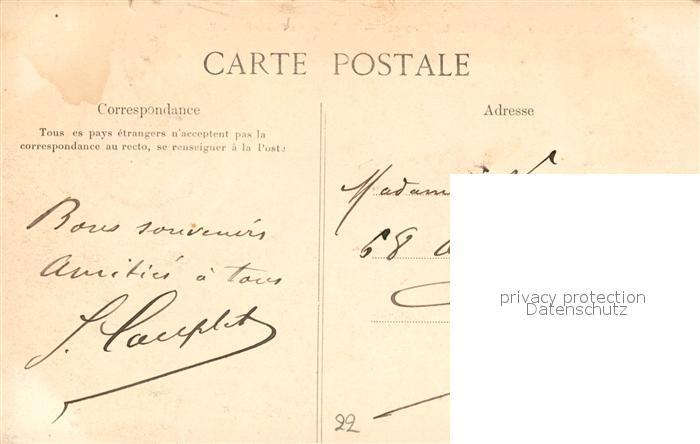 CARTE POSTALE
Correspondance
Tous es pays étrangers n'acceptent pas la
correspondance au recto, se renseigner à la Poste
Bons souvenirs
Amitiés à tous
Adresse
Madam
68
privacy protection
Datenschutz
22